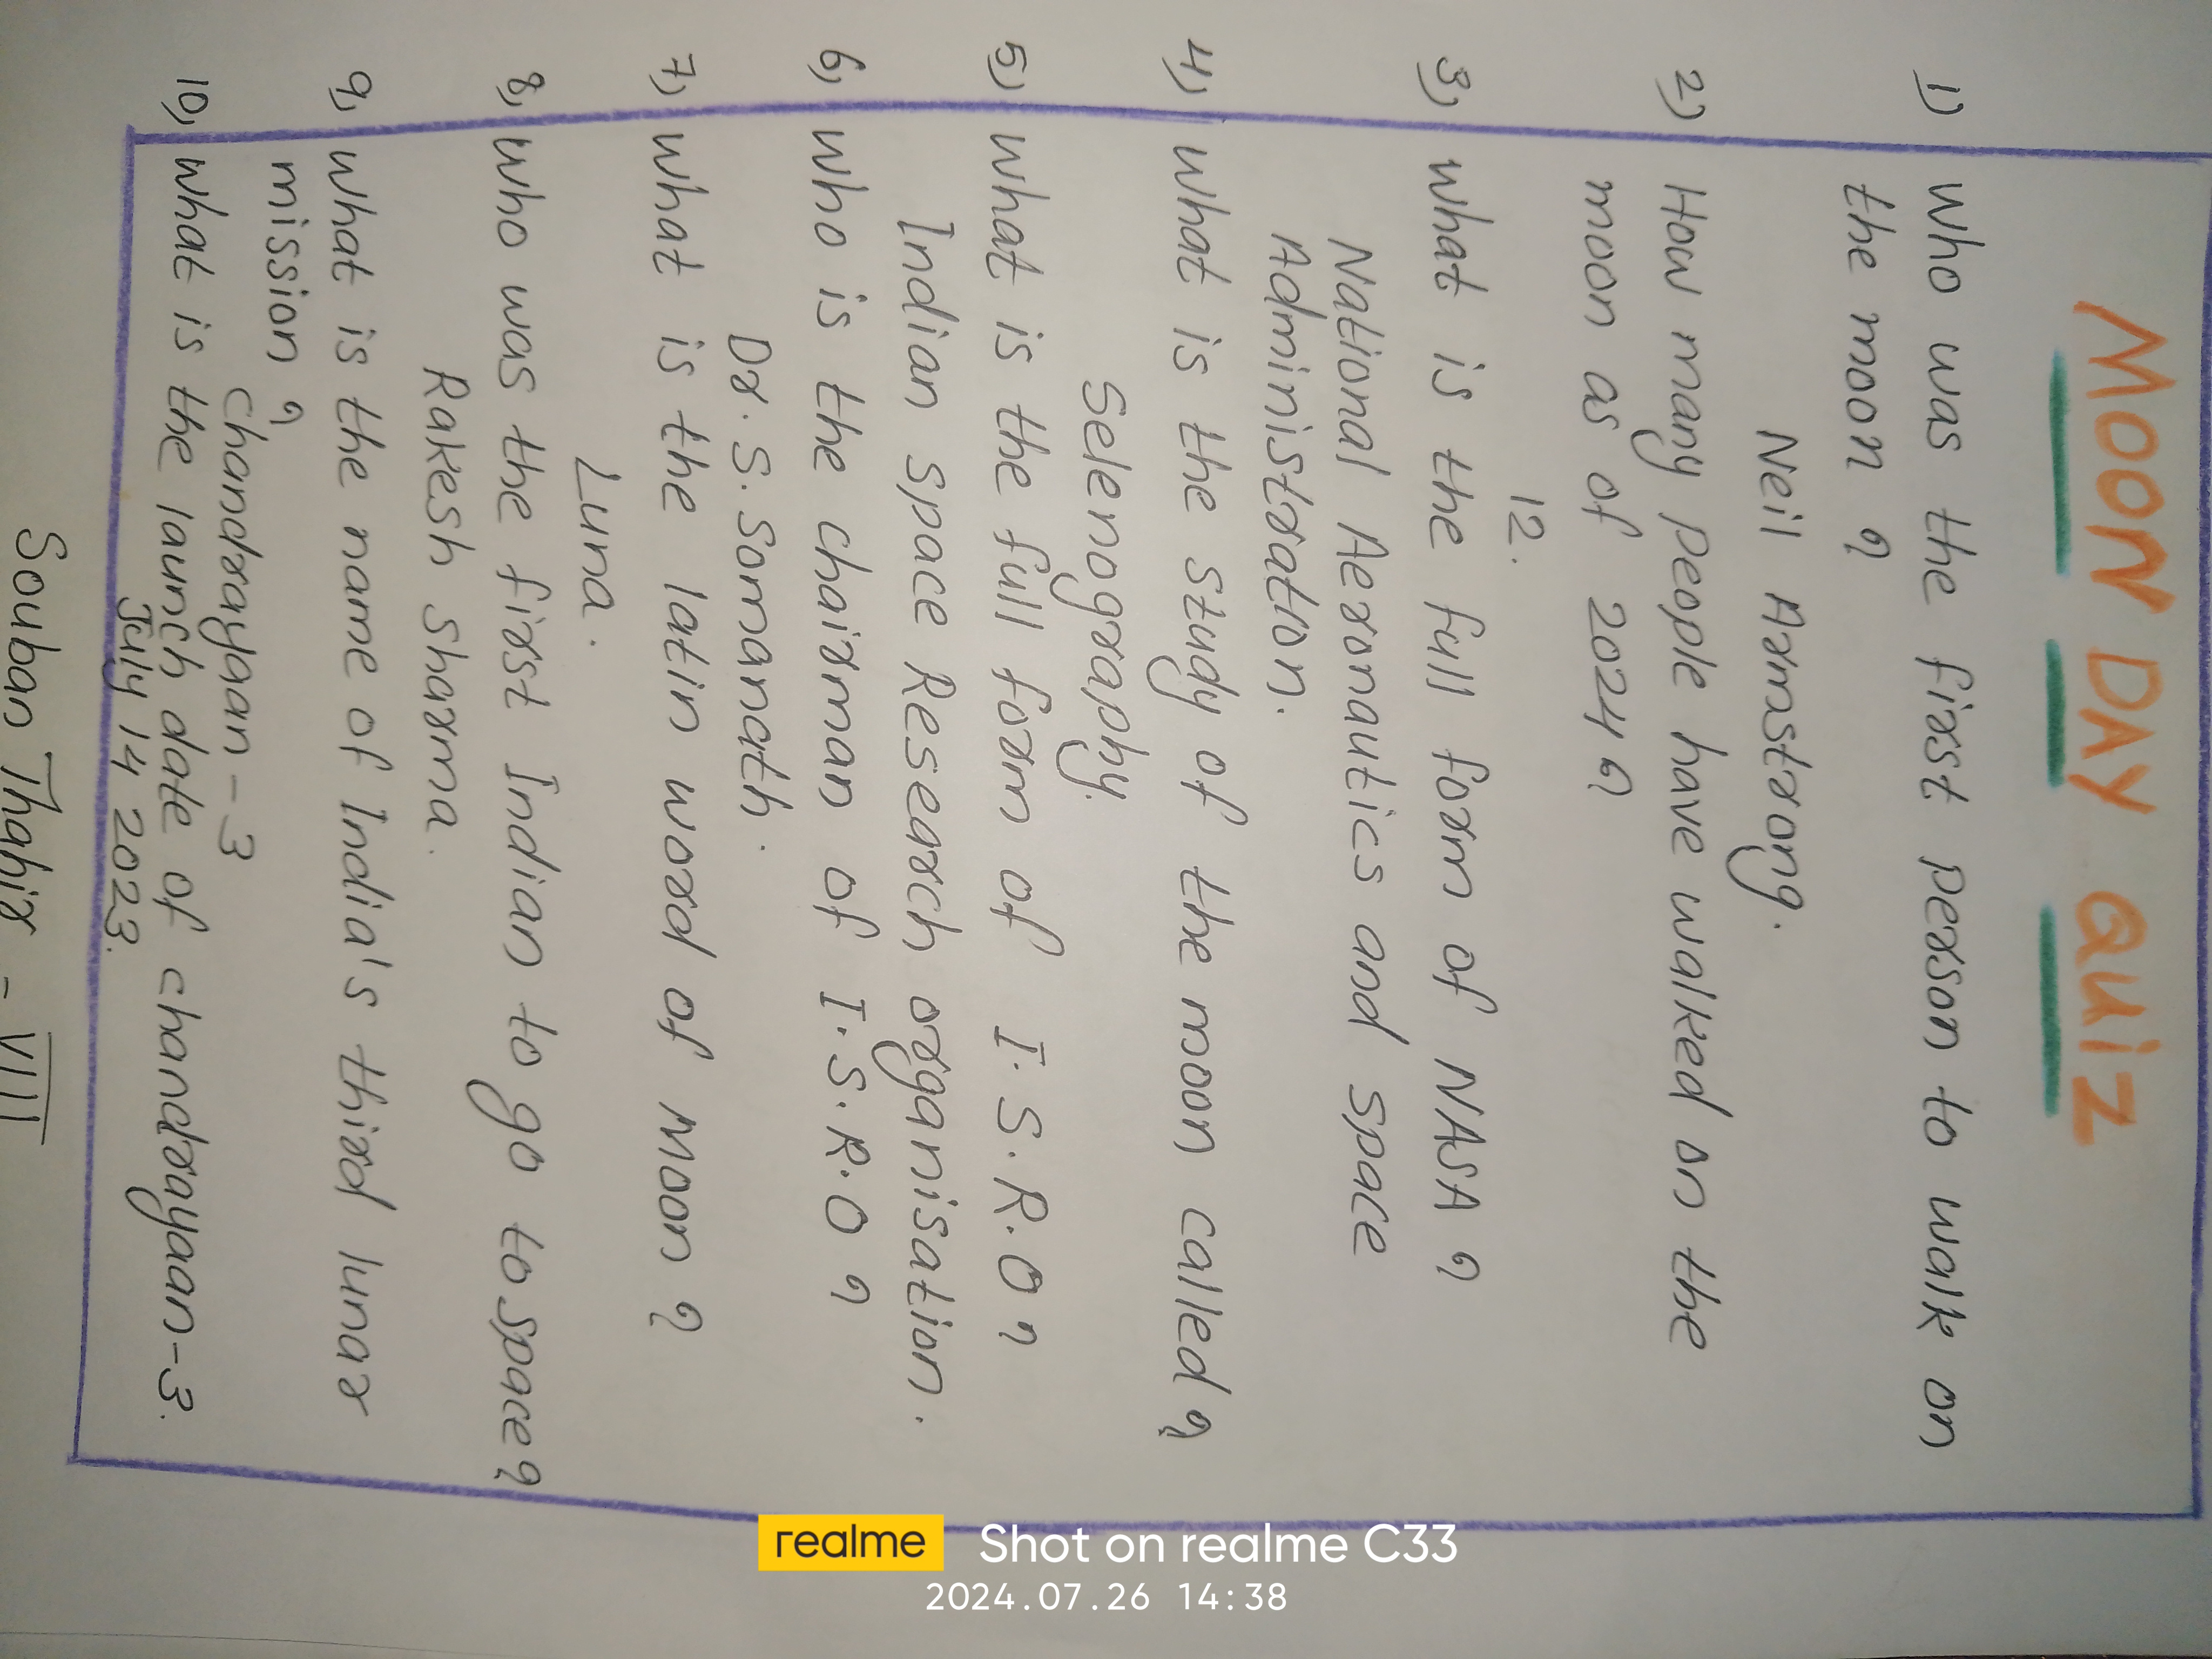 MOON DAY QUIZ
1) Who was the first person to walk on
the moon ?
Neil Armstrong.
2) How many people have walked on the
moon as of 2024 ?
12.
3) what is the full form of NASA ?
National Aeronautics and space
Administration.
4) what is the study of the moon called ?
Selenography.
5) what is the full form of I.S.R.O ?
Indian space Research organisation.
6) who is the chairman of I.S.R.O ?
Dr. S. Somanath.
7) what is the latin word of Moon ?
Luna.
8) who was the first Indian to go to space ?
Rakesh sharma.
9) what is the name of India's third lunar
mission ?
chandrayaan-3
10) what is the launch date of chandrayaan-3.
July 14 2023.
Souban Thahir - VIII
realme Shot on realme C33
2024.07.26 14:38